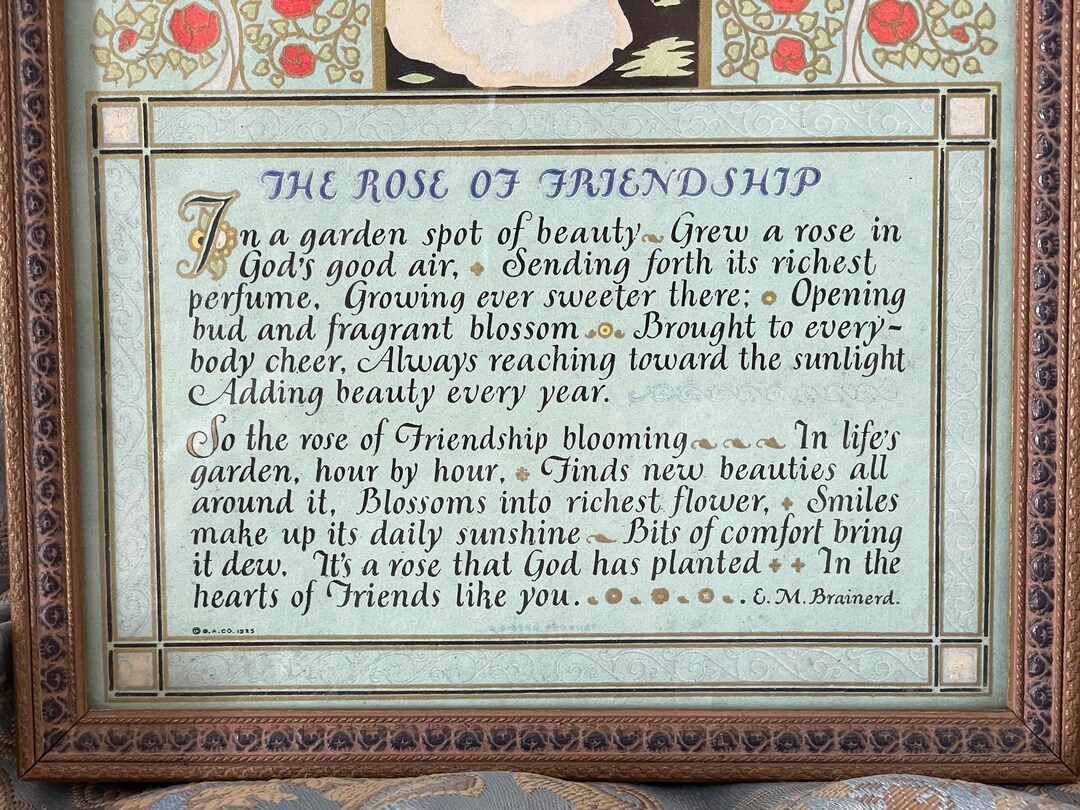 THE ROSE OF FRIENDSHIP
In a garden spot of beauty Grew a rose in
God's good air, Sending forth its richest
perfume, Growing ever sweeter there; Opening
bud and fragrant blossom Brought to every-
body cheer, Always reaching toward the sunlight
Adding beauty every year.
So the rose of Friendship blooming In life's
garden, hour by hour, Finds new beauties all
around it, Blossoms into richest flower, Smiles
make up its daily sunshine Bits of comfort bring
it dew. It's a rose that God has planted In the
hearts of Friends like you. E. M. Brainerd.